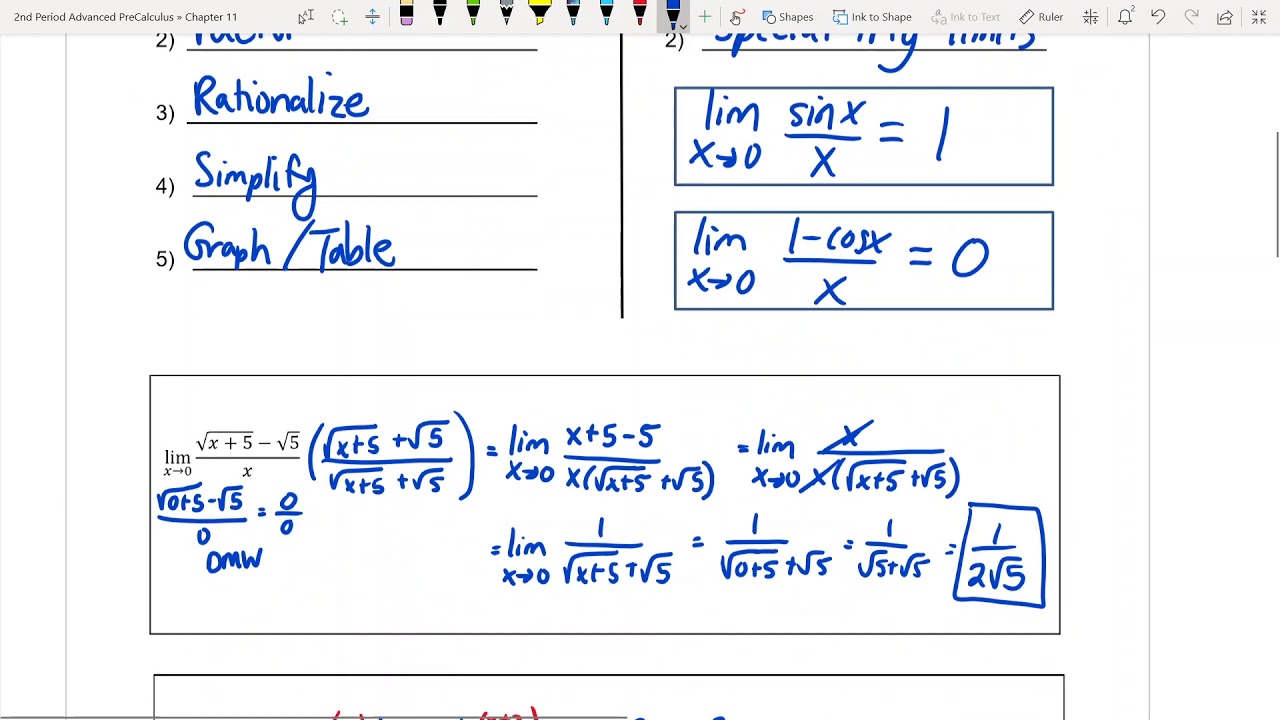 2nd Period Advanced PreCalculus » Chapter 11
Shapes
Ink to Shape
Ink to Text
Ruler
2) Factor
3) Rationalize
4) Simplify
5) Graph / Table
2) Special trig limits
lim x→0 sin x / x = 1
lim x→0 1-cosx / x = 0
lim x→0 √x + 5 − √5 / x (√x+5 + √5 / √x+5 + √5) = lim x→0 x+5-5 / x(√x+5 + √5) = lim x→0 x / x(√x+5 + √5)
√0+5 - √5 / 0 = 0/0
DMW
= lim x→0 1 / √x+5 + √5 = 1 / √0+5 + √5 = 1 / √5+√5 = 1 / 2√5